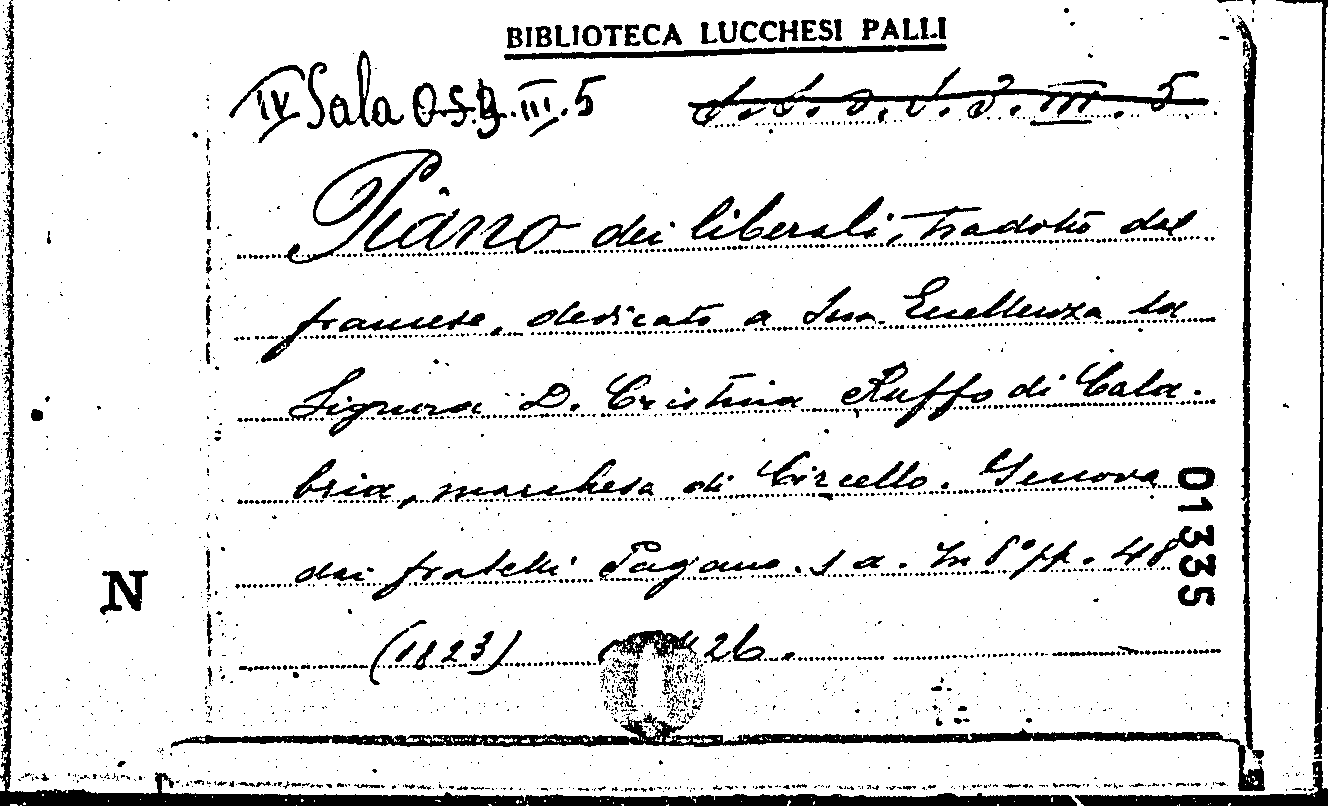 BIBLIOTECA LUCCHESI PALLI
IV Sala III.5
III. 5
Piano dei liberali, tradotto dal
francese, dedicato a Sua Eccellenza la
Signora D. Cristina Ruffo di Cala-
bria, marchesa di Circello. Genova
dai fratelli Pagano. s a. In 8° pp. 48
(1823) 26.
01335
N